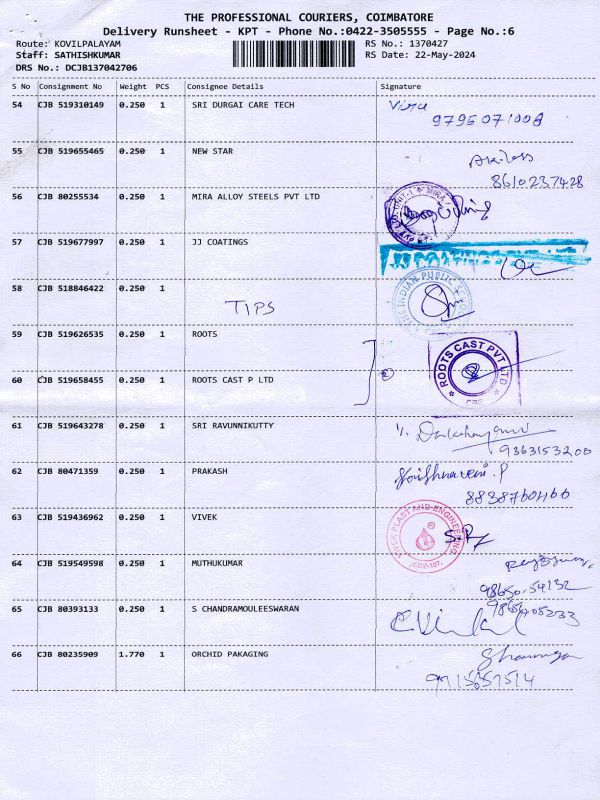 THE PROFESSIONAL COURIERS, COIMBATORE
Delivery Runsheet - KPT - Phone No.:0422-3505555 - Page No.:6
Route: KOVILPALAYAM RS No.: 1370427
Staff: SATHISHKUMAR RS Date: 22-May-2024
DRS No.: DCJB137042706
S No Consignment No Weight PCS Consignee Details Signature
54 CJB 519310149 0.250 1 SRI DURGAI CARE TECH
55 CJB 519655465 0.250 1 NEW STAR
8610237428
56 CJB 80255534 0.250 1 MIRA ALLOY STEELS PVT LTD
57 CJB 519677997 0.250 1 JJ COATINGS
58 CJB 518846422 0.250 1
TIPS
THE INDIAN PUBLIC
59 CJB 519626535 0.250 1 ROOTS
ROOTS CAST PVT LTD
60 CJB 519658455 0.250 1 ROOTS CAST P LTD
61 CJB 519643278 0.250 1 SRI RAVUNNIKUTTY
9363153200
62 CJB 80471359 0.250 1 PRAKASH
63 CJB 519436962 0.250 1 VIVEK
VIVEK PLAST AND ENGINEERING
64 CJB 519549598 0.250 1 MUTHUKUMAR
98650-54132
65 CJB 80393133 0.250 1 S CHANDRAMOULEESWARAN
66 CJB 80235909 1.770 1 ORCHID PAKAGING